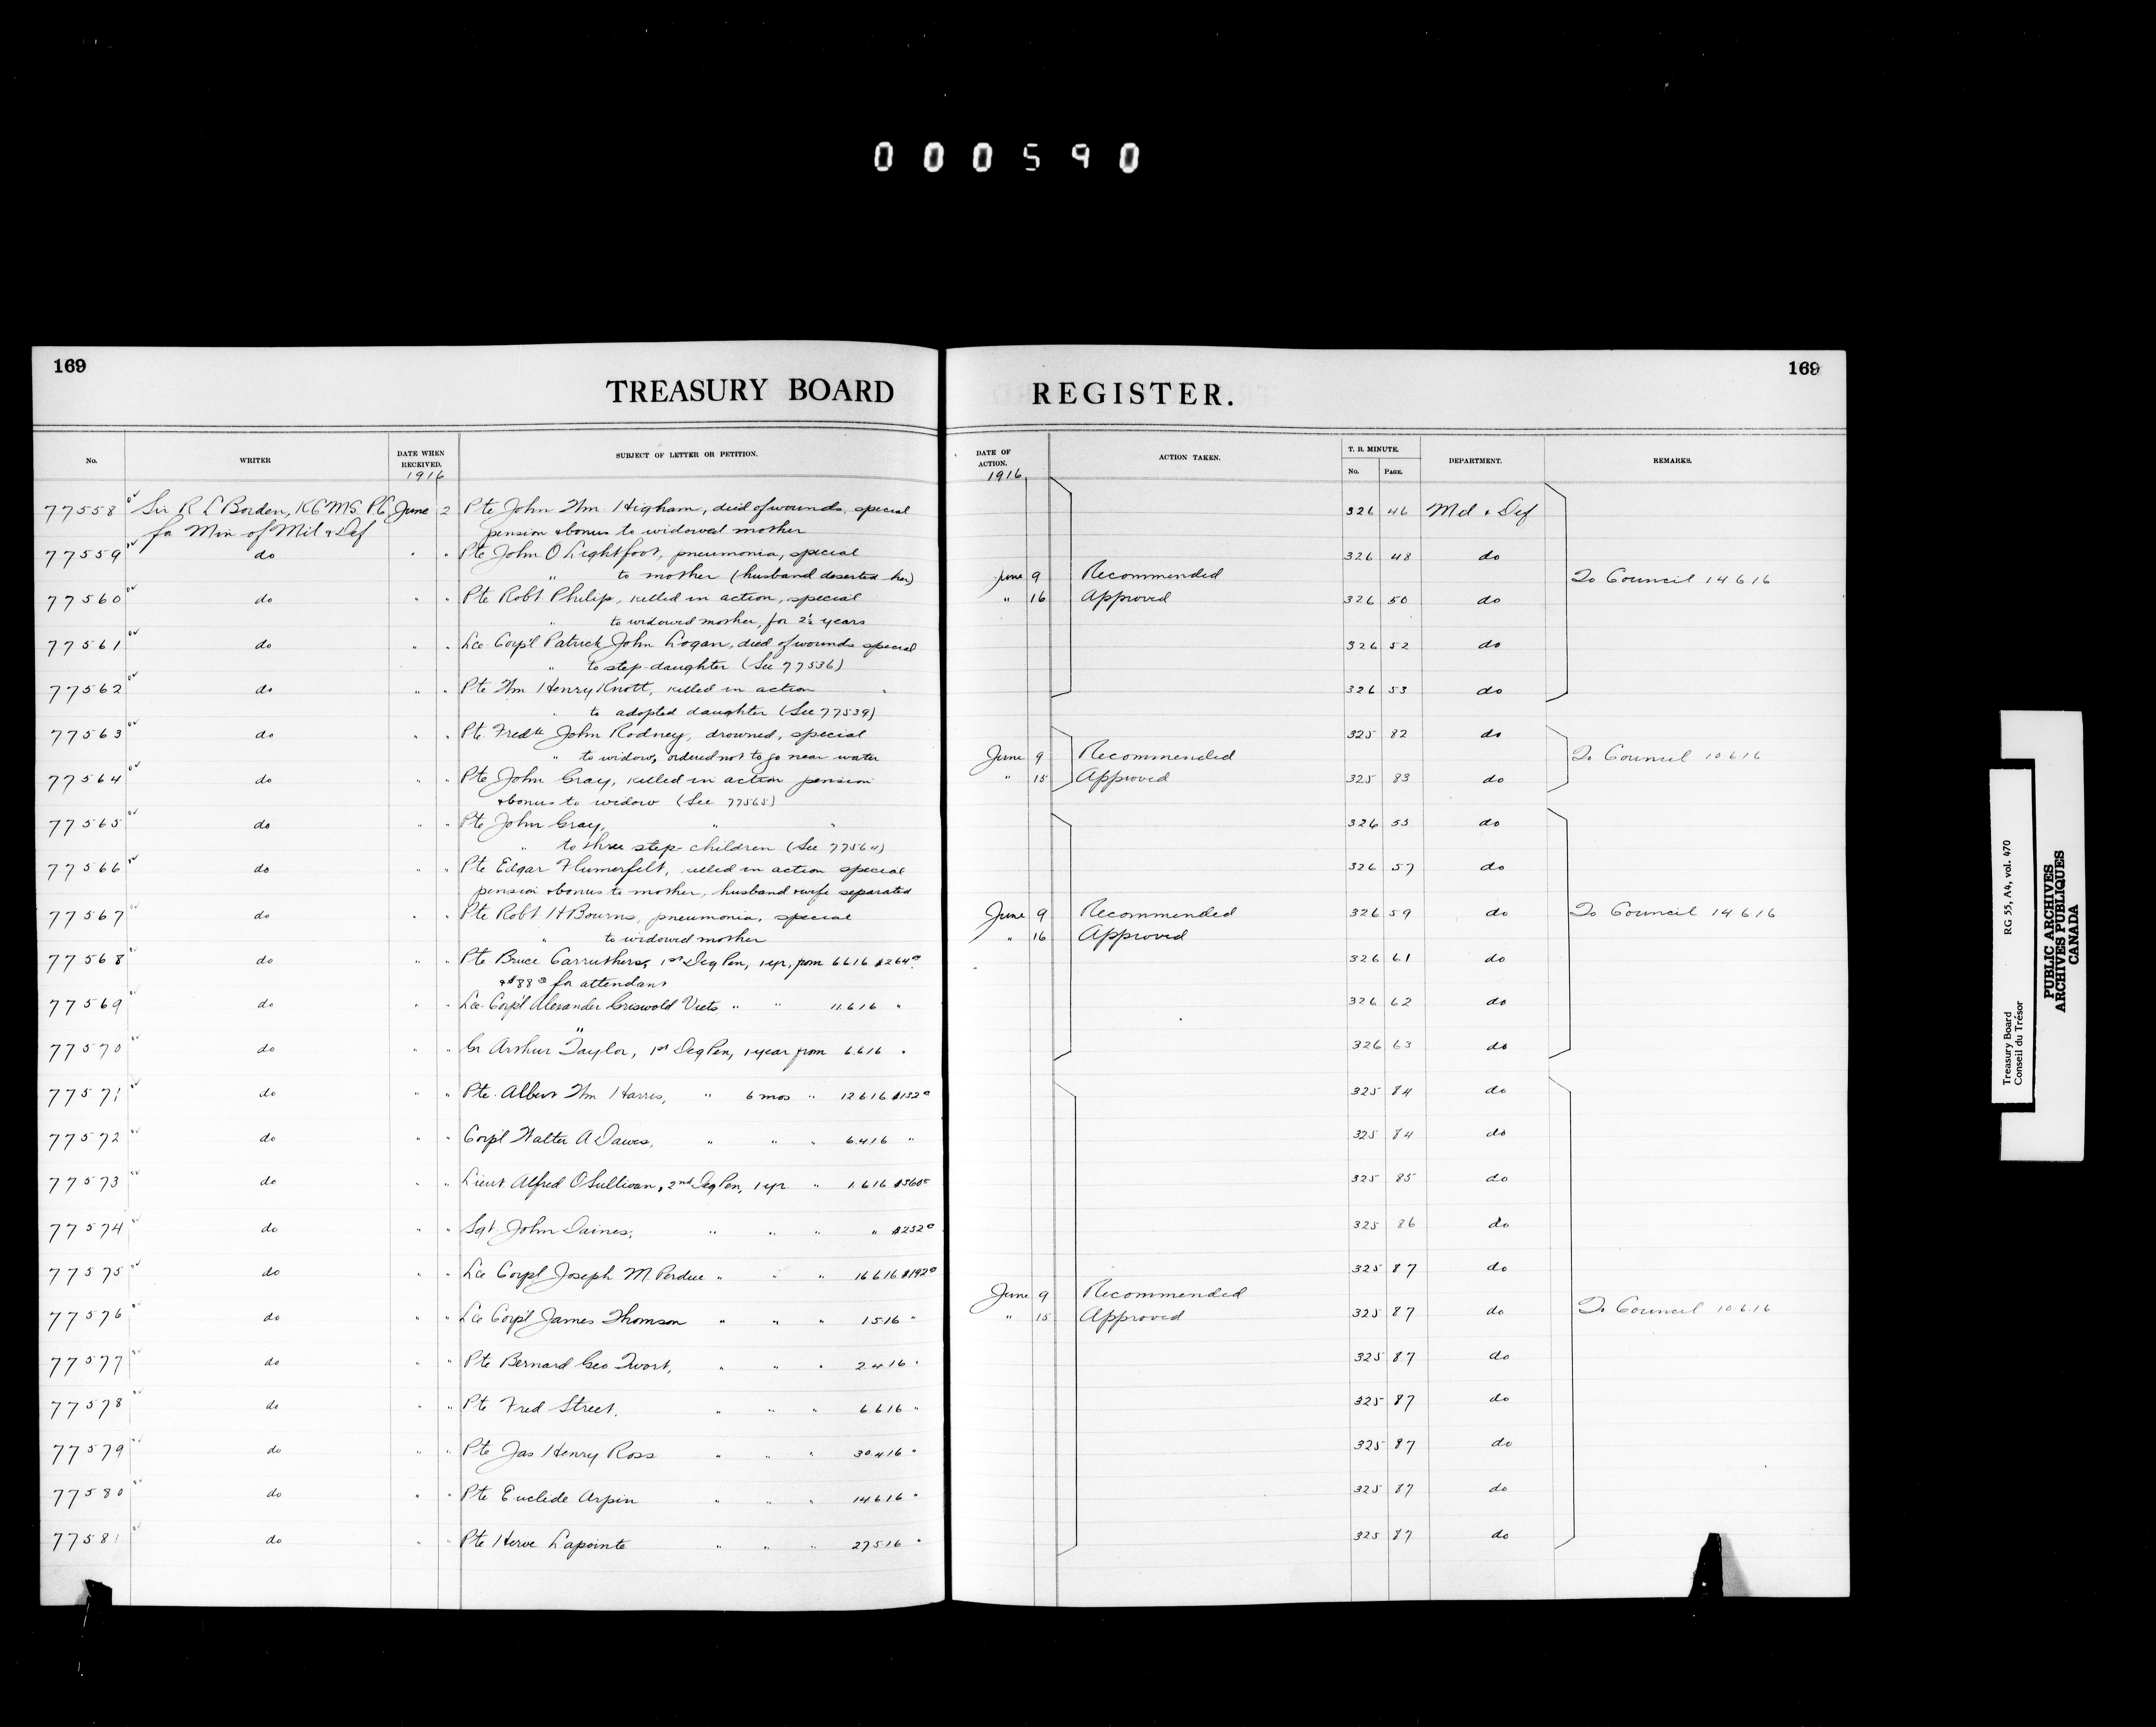 000590
169
TREASURY BOARD
REGISTER.
169
No. WRITER DATE WHEN RECEIVED. 1916 SUBJECT OF LETTER OR PETITION. DATE OF ACTION. 1916 ACTION TAKEN. T. B. MINUTE. No. PAGE. DEPARTMENT. REMARKS.
77558 Sir R L Borden, KCMG PC June 2 Pte John Wm Higham, died of wounds, special 326 46 Mil & Def
for Min of Mil & Def pension & bonus to widowed mother
77559 do " " Pte John O Lightfoot, pneumonia, special 326 48 do
" to mother (husband deserted her) June 9 Recommended To Council 14 6 16
77560 do " " Pte Robt Philip, killed in action, special " 16 Approved 326 50 do
" to widowed mother, for 2½ years
77561 do " " Lce Corp'l Patrick John Logan, died of wounds special 326 52 do
" to step-daughter (See 77536)
77562 do " " Pte Wm Henry Knott, killed in action " 326 53 do
" to adopted daughter (See 77539)
77563 do " " Pte Fredk John Rodney, drowned, special 325 82 do
" to widow, ordered not to go near water June 9 Recommended To Council 10 6 16
77564 do " " Pte John Gray, killed in action pension " 15 Approved 325 83 do
& bonus to widow (See 77565)
77565 do " " Pte John Gray, " " 326 55 do
" to three step-children (See 77564)
77566 do " " Pte Edgar Flumerfelt, killed in action special 326 57 do
pension & bonus to mother, husband & wife separated
77567 do " " Pte Robt H Bourns, pneumonia, special June 9 Recommended 326 59 do To Council 14 6 16
" to widowed mother " 16 Approved
77568 do " " Pte Bruce Carruthers, 1st Deg Pen, 1 yr, from 6 6 16 $264 326 61 do
& $88 for attendant
77569 do " " Lce Corp'l Alexander Griswold Viets " " 11.6.16 " 326 62 do
77570 do " " Gr Arthur Taylor, 1st Deg Pen, 1 year from 6.6.16 " 326 63 do
77571 do " " Pte Albert Wm Harris, " 6 mos " 12 6 16 $132 325 84 do
77572 do " " Corp'l Walter A Dawes, " " " 6.4.16 " 325 84 do
77573 do " " Lieut Alfred O'Sullivan, 2nd Deg Pen, 1 yr " 1.6.16 $360 325 85 do
77574 do " " Sgt. John Daines, " " " " $252 325 86 do
77575 do " " Lce Corpl Joseph M. Perdue " " " 16 6 16 $192 325 87 do
June 9 Recommended
77576 do " " Lce Corp'l James Thomson " " " 1 5 16 " " 15 Approved 325 87 do To Council 10 6 16
77577 do " " Pte Bernard Geo Twort, " " " 2.4.16 " 325 87 do
77578 do " " Pte Fred Street, " " " 6 6.16 " 325 87 do
77579 do " " Pte Jas Henry Ross " " " 30.4.16 " 325 87 do
77580 do " " Pte Euclide Arpin " " " 14.6.16 " 325 87 do
77581 do " " Pte Herve Lapointe " " " 27 5 16 " 325 87 do
Treasury Board RG 55, A4, vol. 470
Conseil du Trésor
PUBLIC ARCHIVES
ARCHIVES PUBLIQUES
CANADA